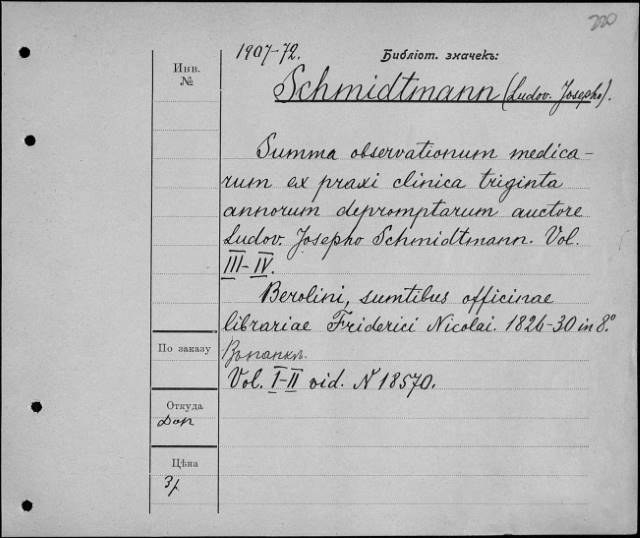 220
1907-72.
Библіот. значекъ:
Инв.
№
Schmidtmann (Ludov. Josepho).
Summa observationum medica-
rum ex praxi clinica triginta
annorum depromptarum auctore
Ludov. Josepho Schmidtmann. Vol.
III-IV.
Berolini, sumtibus officinae
librariae Friderici Nicolai. 1826-30 in 8.°
По заказу
Vol. I-II vid. N 18570.
Откуда
Цѣна
3р